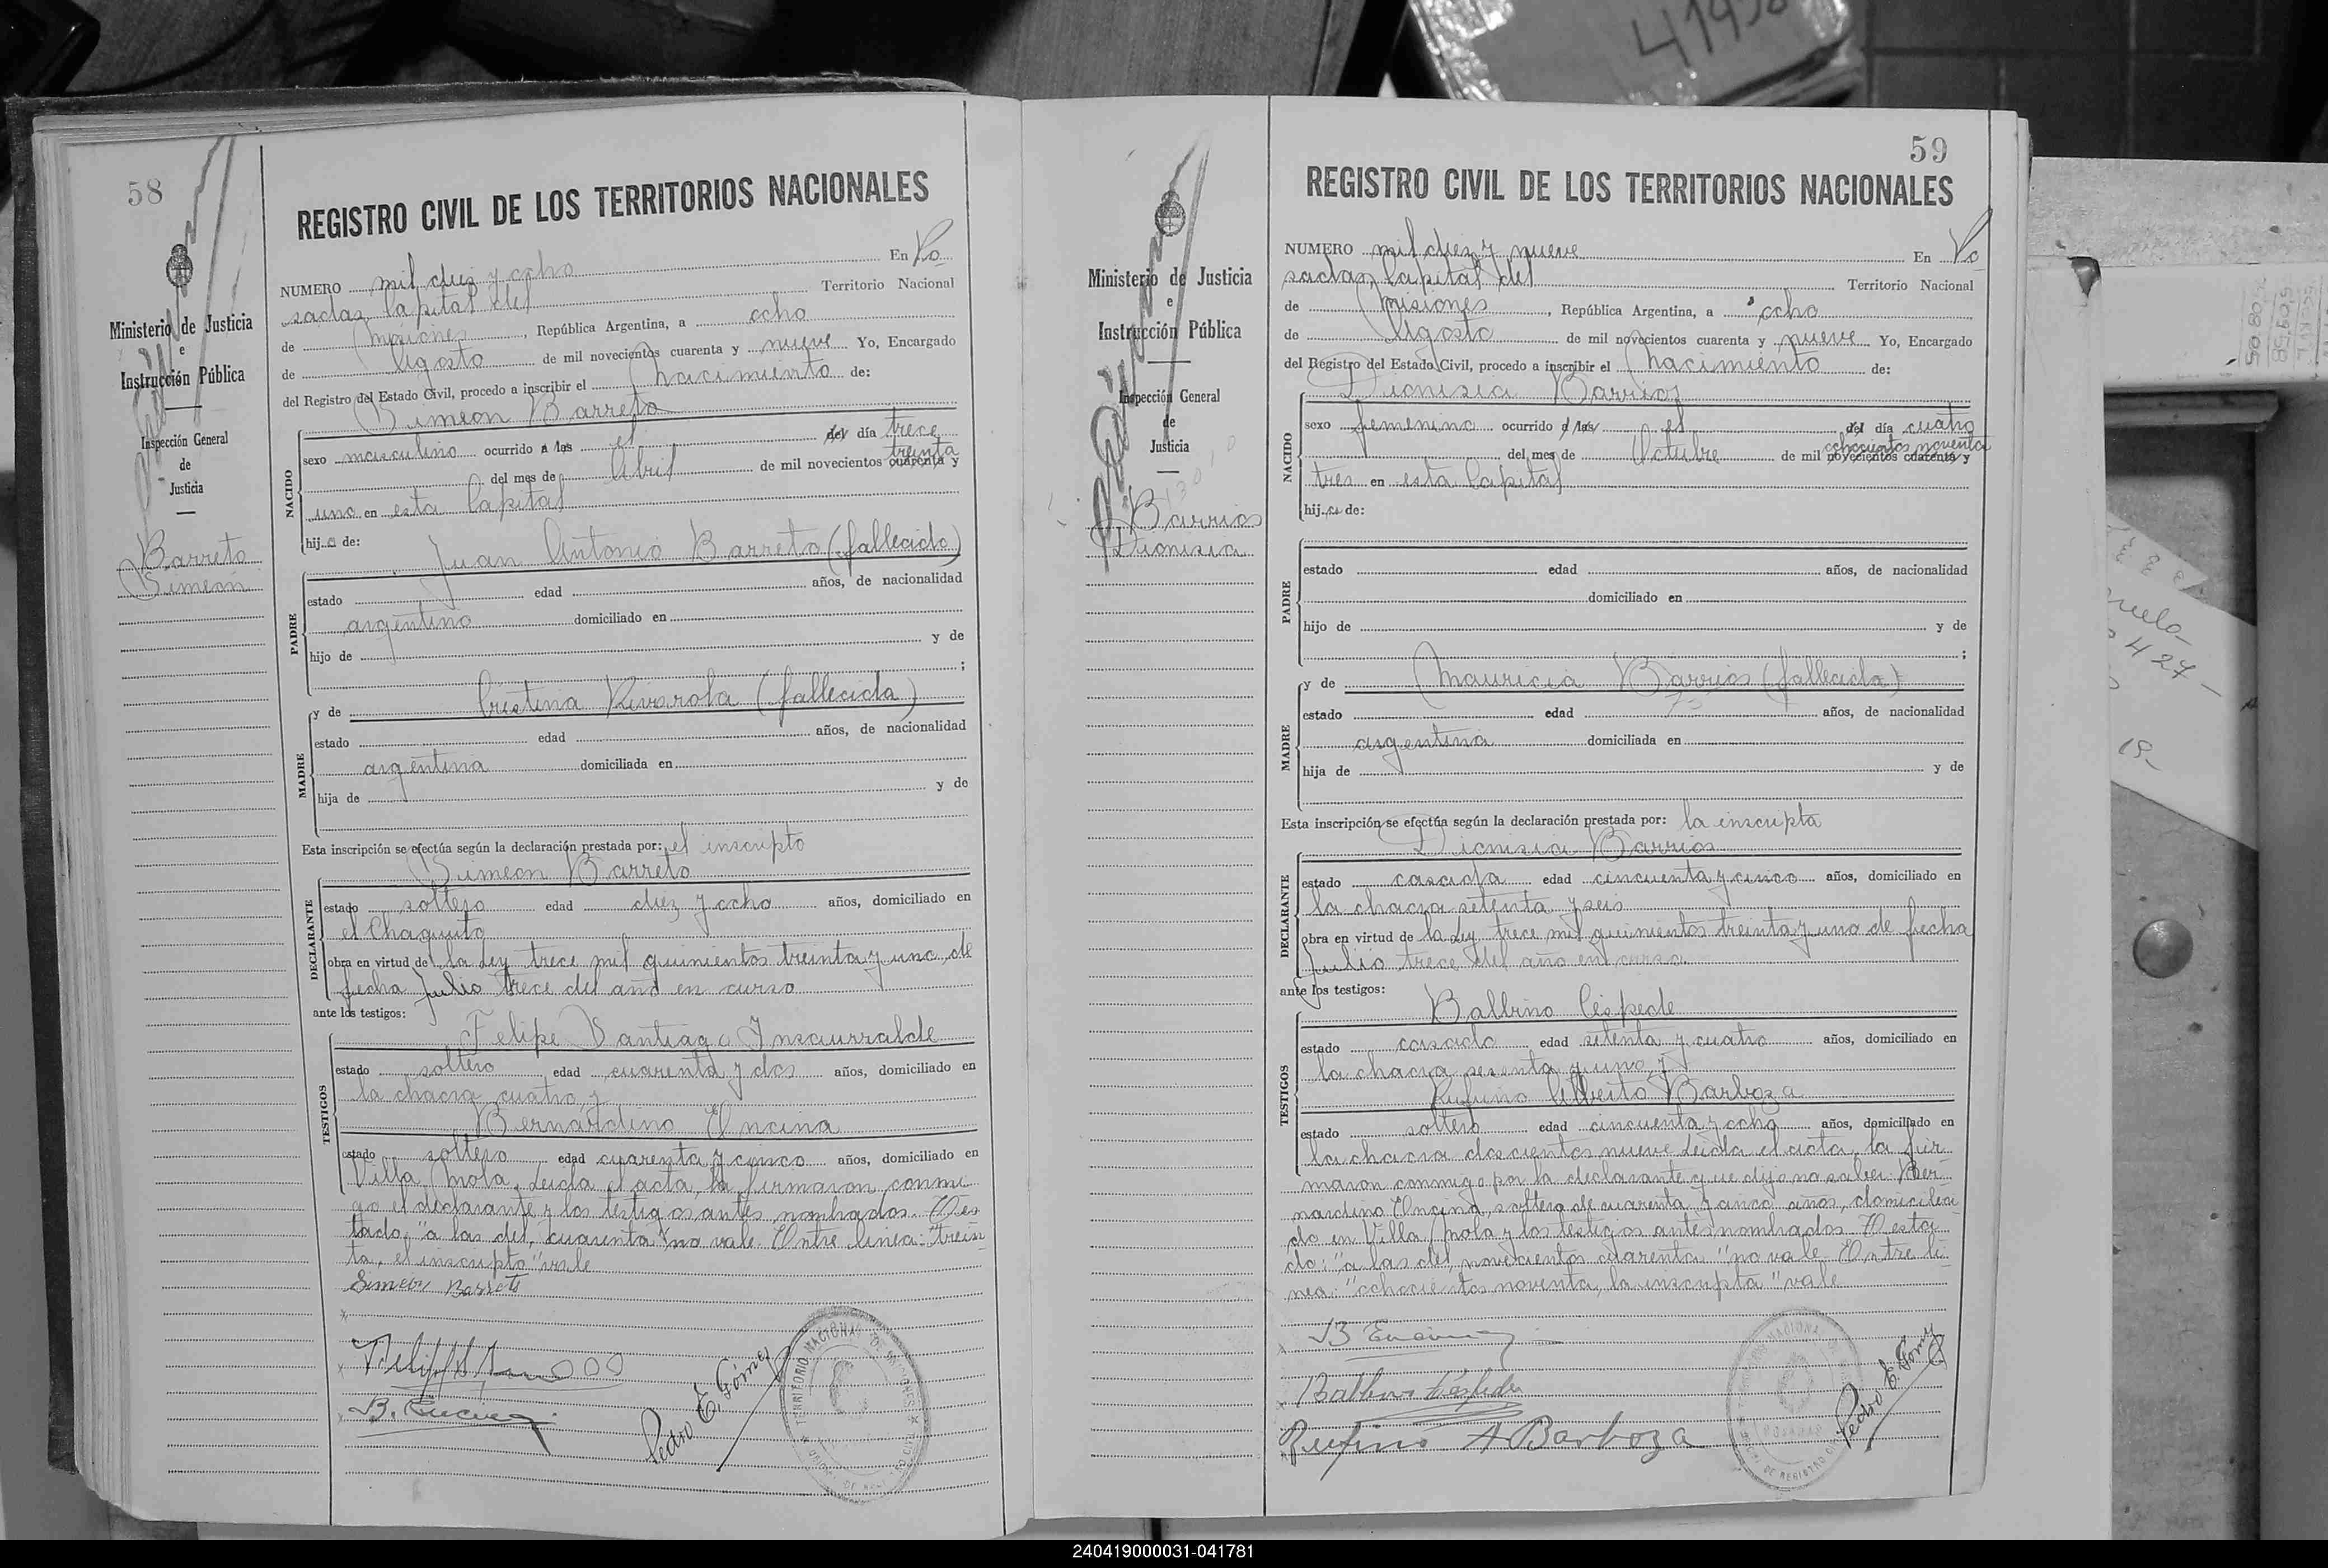 41950
58
REGISTRO CIVIL DE LOS TERRITORIOS NACIONALES
Ministerio de Justicia
e
Instrucción Pública
Inspección General
de
Justicia
Barreto
Simeón
NUMERO mil diez y ocho En Po
sadas, Capital del Territorio Nacional
de Misiones, República Argentina, a ocho
de Agosto de mil novecientos cuarenta y nueve Yo, Encargado
del Registro del Estado Civil, procedo a inscribir el nacimiento de:
Simeon Barreto
NACIDO
sexo masculino ocurrido a las el del día trece
treinta
del mes de Abril de mil novecientos cuarenta y
uno en esta Capital
hijo de:
Juan Antonio Barreto (fallecido)
PADRE
estado edad años, de nacionalidad
argentino domiciliado en
hijo de y de
;
y de Cristina Rivarola (fallecida)
MADRE
estado edad años, de nacionalidad
argentina domiciliada en
hija de y de
Esta inscripción se efectúa según la declaración prestada por: el inscripto
Simeon Barreto
DECLARANTE
estado soltero edad diez y ocho años, domiciliado en
el Chaquito
obra en virtud de la Ley trece mil quinientos treinta y uno de
fecha Julio trece del año en curso
ante los testigos:
Felipe Santiago Insaurralde
TESTIGOS
estado soltero edad cuarenta y dos años, domiciliado en
la chacra cuatro, y
Bernardino Encina
estado soltero edad cuarenta y cinco años, domiciliado en
Villa Mola. Leida el acta, la firmaron conmi
go el declarante y los testigos antes nombrados. Tes
tado: "a las del, cuarenta" no vale. Entre linea: "trein
ta, el inscripto" vale
Simeon Barreto
B. Encina
Pedro E. Gómez
59
REGISTRO CIVIL DE LOS TERRITORIOS NACIONALES
Ministerio de Justicia
e
Instrucción Pública
Inspección General
de
Justicia
Barrios
Dionisia
NUMERO mil diez y nueve En Po
sadas, Capital del Territorio Nacional
de Misiones, República Argentina, a ocho
de Agosto de mil novecientos cuarenta y nueve Yo, Encargado
del Registro del Estado Civil, procedo a inscribir el nacimiento de:
Dionisia Barrios
NACIDO
sexo femenino ocurrido a las el del día cuatro
ochocientos noventa
del mes de Octubre de mil novecientos cuarenta y
tres en esta Capital
hija de:
PADRE
estado edad años, de nacionalidad
domiciliado en
hijo de y de
;
y de Mauricia Barrios (fallecida)
MADRE
estado edad años, de nacionalidad
argentina domiciliada en
hija de y de
Esta inscripción se efectúa según la declaración prestada por: la inscripta
Dionisia Barrios
DECLARANTE
estado casada edad cincuenta y cinco años, domiciliado en
la chacra setenta y seis
obra en virtud de la Ley trece mil quinientos treinta y uno de fecha
Julio trece del año en curso
ante los testigos:
Balbino Céspede
TESTIGOS
estado casado edad setenta y cuatro años, domiciliado en
la chacra y uno, y
Rufino Alberto Barboza
estado soltero edad cincuenta y ocho años, domiciliado en
la chacra doscientos nueve. Leida el acta, la fir
maron conmigo por la declarante que dijo no saber: Ber
nardino Encina, soltero de cuarenta y cinco años, domicilia
do en Villa Mola y los testigos antes nombrados. Testa
do: "a las del, novecientos cuarenta" no vale. Entre li
nea: "ochocientos noventa, la inscripta" vale
B Encina
Balbino Céspede
Rufino A Barboza
Pedro E. Gómez
427
19
240419000031-041781